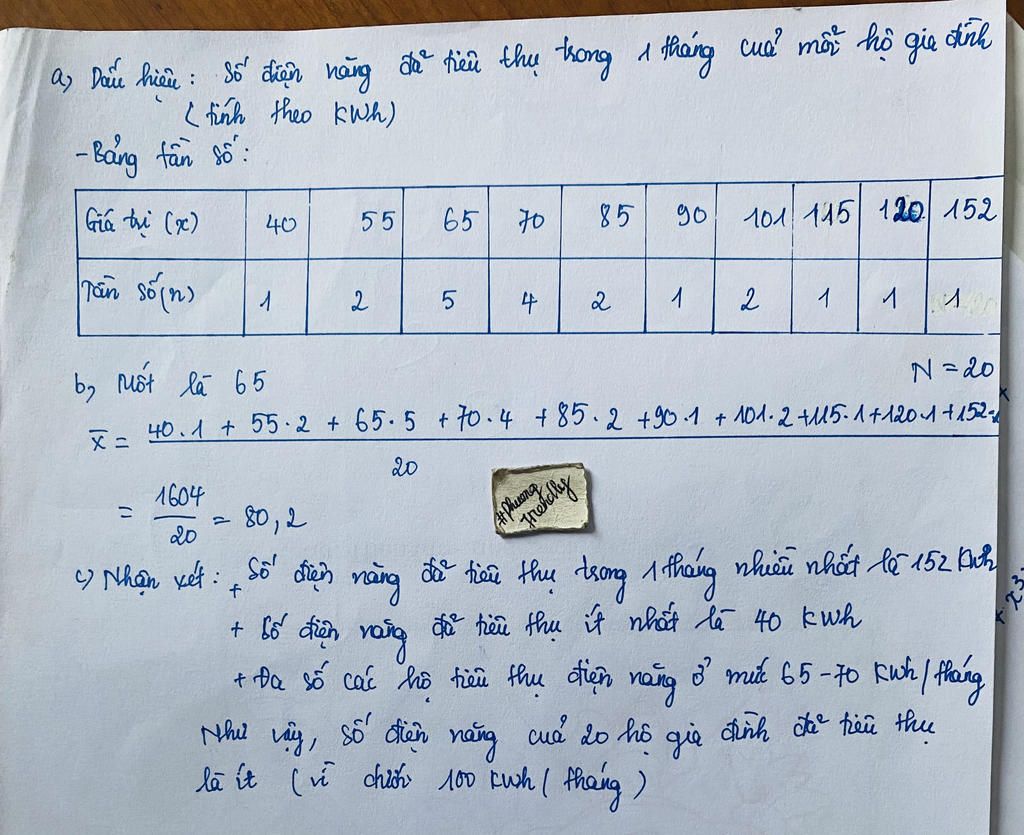 a, Dấu hiệu : Số điện năng đã tiêu thụ trong 1 tháng của mỗi hộ gia đình
(tính theo KWh)
- Bảng tần số :
Giá trị (x) 40 55 65 70 85 90 101 115 120 152
Tần số (n) 1 2 5 4 2 1 2 1 1 1
N = 20
b, Mốt là 65
x̅ = 40.1 + 55.2 + 65.5 + 70.4 + 85.2 + 90.1 + 101.2 + 115.1 + 120.1 + 152.
20
= 1604/20 = 80,2
#Phuong
friendly
c, Nhận xét : + Số điện năng đã tiêu thụ trong 1 tháng nhiều nhất là 152 KWh
+ Số điện năng đã tiêu thụ ít nhất là 40 KWh
+ Đa số các hộ tiêu thụ điện năng ở mức 65 - 70 KWh / tháng
Như vậy, số điện năng của 20 hộ gia đình đã tiêu thụ
là ít ( vì dưới 100 KWh / tháng )